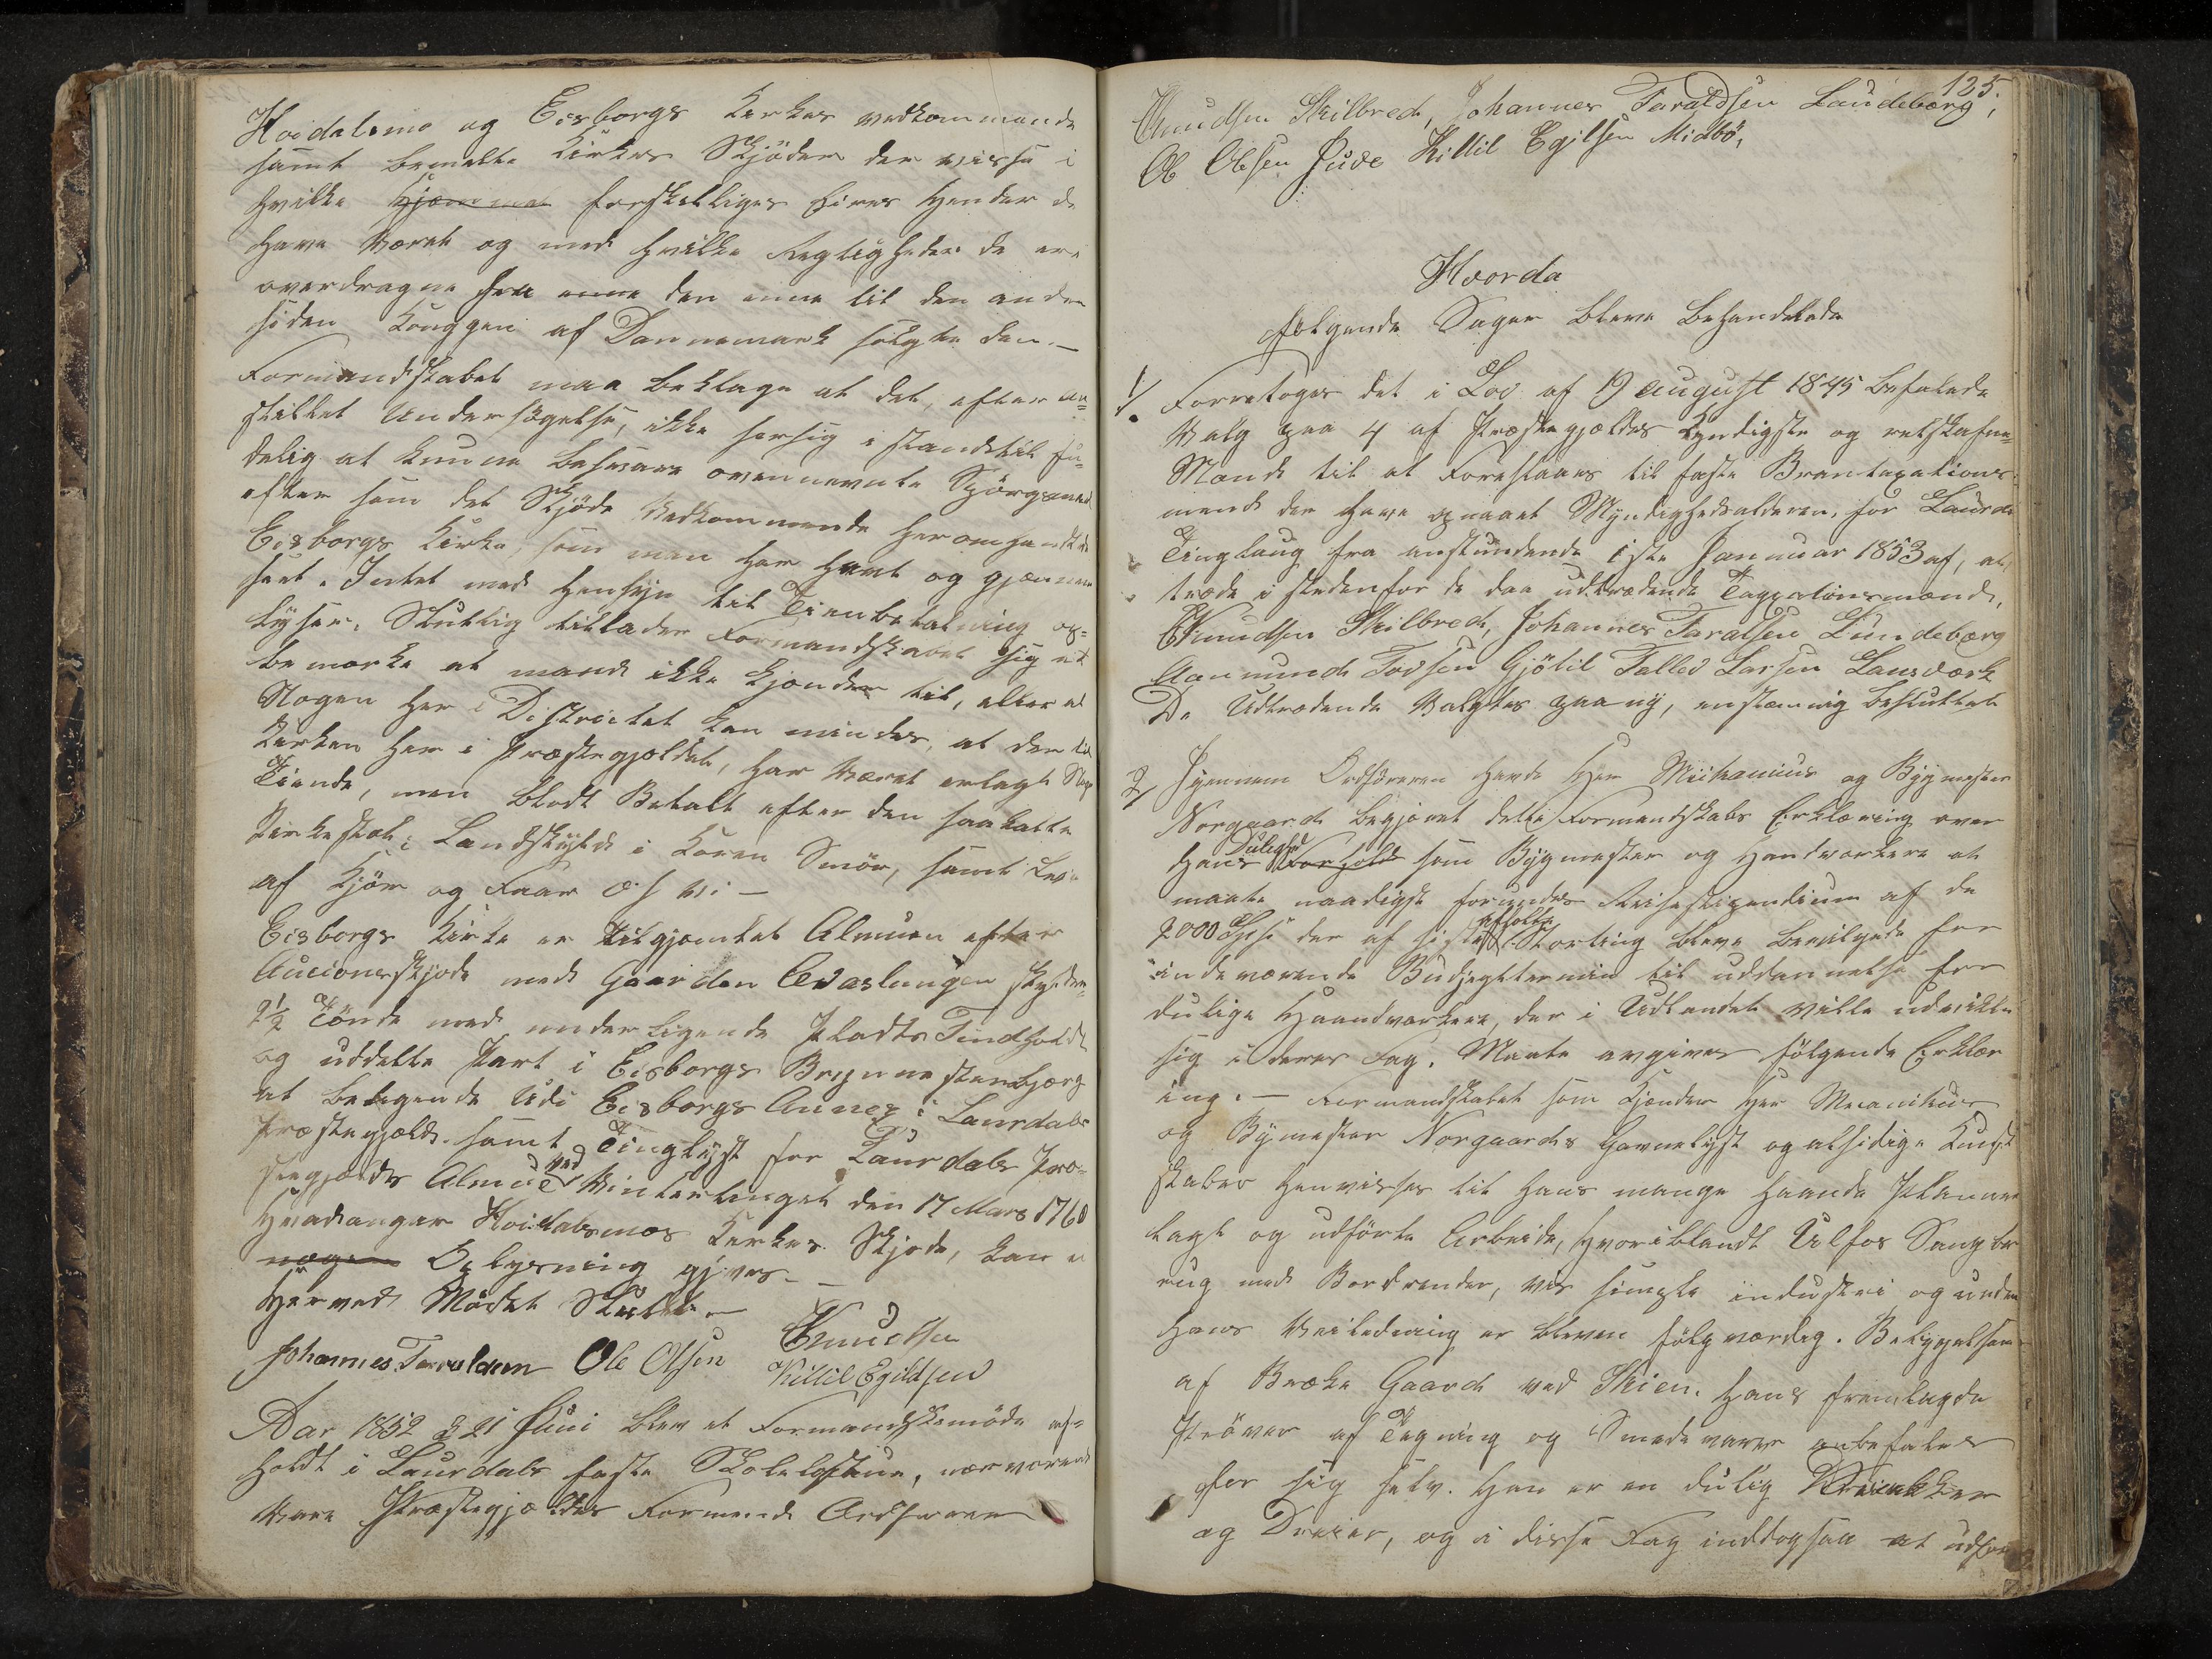 Hoidalsmo og Eisborgs Kirkes vedkommende
samt bemelte Kirkes Skjøder der visse i
hvilke forskellige Eieres Hender de
have været og med hvilke Regtigheder de ere
overdragne fra den ene til den anden
siden Konggen af Dannemark solgte den. —
Formandskabet maa beklage at det, efter an=
stillet Undersøgelse, ikke ser sig i standtil fu=
delig at kunne besvare ovennevnte Spørgsmaal
efter som det Skjøde Vedkommende
Eisborgs Kirke, som man har havt og gjennem
seet. Intet med Hensyn til Tienbetalning op=
lyser. Sluttlig tillader Formandskabet sig at
bemærke at mand ikke kjender til, eller at
Nogen her i Districtet kan mindes, at der til
Kirken her i Præstegjeldet, har været erlagt
Tiende, men blodt Betalt efter den saakalte
Kirkestol: Landskyld i Koren Smør, samt Leie
af Kjør og Faar o. s. v: —
Eisborgs Kirke er tilgjæmlet Almuen efter
Aucionsskjøde med Gaarden Aadaslungen skylden=
2½ Tønde med underligende Pladts Tindhold
og uddelte Part i Eisborgs Brynnestenbjerg
at beliggende Udi Eisborgs Annex i Laurdals
Præstegjæld. samt Tinglyst for Laurdals Præ=
stegjælds Almue ved Vintertinget den 17 Mars 1760
Hvadangaar Hoidalsmos Kirkes Skjøde, kan ei
nogen Oplysning gives. —
Hermed Mødet Sluttet. —
Johannes Taraldsen Ole Olsen Knudsen
Killil Egildsen
Aar 1852 d 21 Juni blev et Formandskmøde af=
holdt i Laurdals faste Skolelostue, nerværende
Vare Præstegjældes Formænd Ordføreren
125.
Knudsen Skilbred, Johannes Taraldsen Laudeberg,
Ole Olsen Juve Killil Egilsen Midbø,
Hvorda
følgende Sager bleve Behandlede
1/ Forretoges det i Lov af 19 august 1845 befalede
Valg paa 4 af Præstegjældes kyndigste og retskafne=
Mænd til at Foreslaaes til faste Brantaxations
mend der have opnaaet Myndighedsalderen, for Laurdal
Tinglaug fra anstundende 1ste Januar 1853 af, at
træde i stedenfor de daa udtrædende Taxationsmænd,
Knudsen Skilbred, Johannes Taralsen Lundeberg
Aanmund Tovsen Gjøtil Tallev Larsen Lansværk
De Udtrædende Valgtes paa ny, enstæmig besluttet
2/ Gjennem Ordføreren havde Her Mikanicus og Bygmester
Norgaard begjæret dette Formandskabs Erklæring over
Hans Dulighed Forhold som Bygmester og Handværkere at
maate naadigst forundes Reisestipendium af de
2000 Spd: der af siste afholte Storting bleve bevilgede for
indeværende Budjegttermin til uddannelse for
dulige Haandværkere, der i Udlandet ville udvikle
sig i deres Fag. Maate avgives følgende Erklær
ing. — Formandskabet som kjender Her Mecanikus
og Bymester Norgaards Gavnelyst og alsidige Kund
skaber henviser til Hans mange haande Planne
lagt og udførte Arbeide, hvoriblandt Ulfos Sangbr
rug med Bordrender, ved simple industri og under
Hans Veiledning er bleven følgværdig. Beliggelsen
af Bræke Gaard ved Skien. Hans fremlagde
Prøver af Tegning og Smedevarer anbefales
for sig selv. Han er en dulig
og Dreier, og i disse Fag inddogsaa at udføre